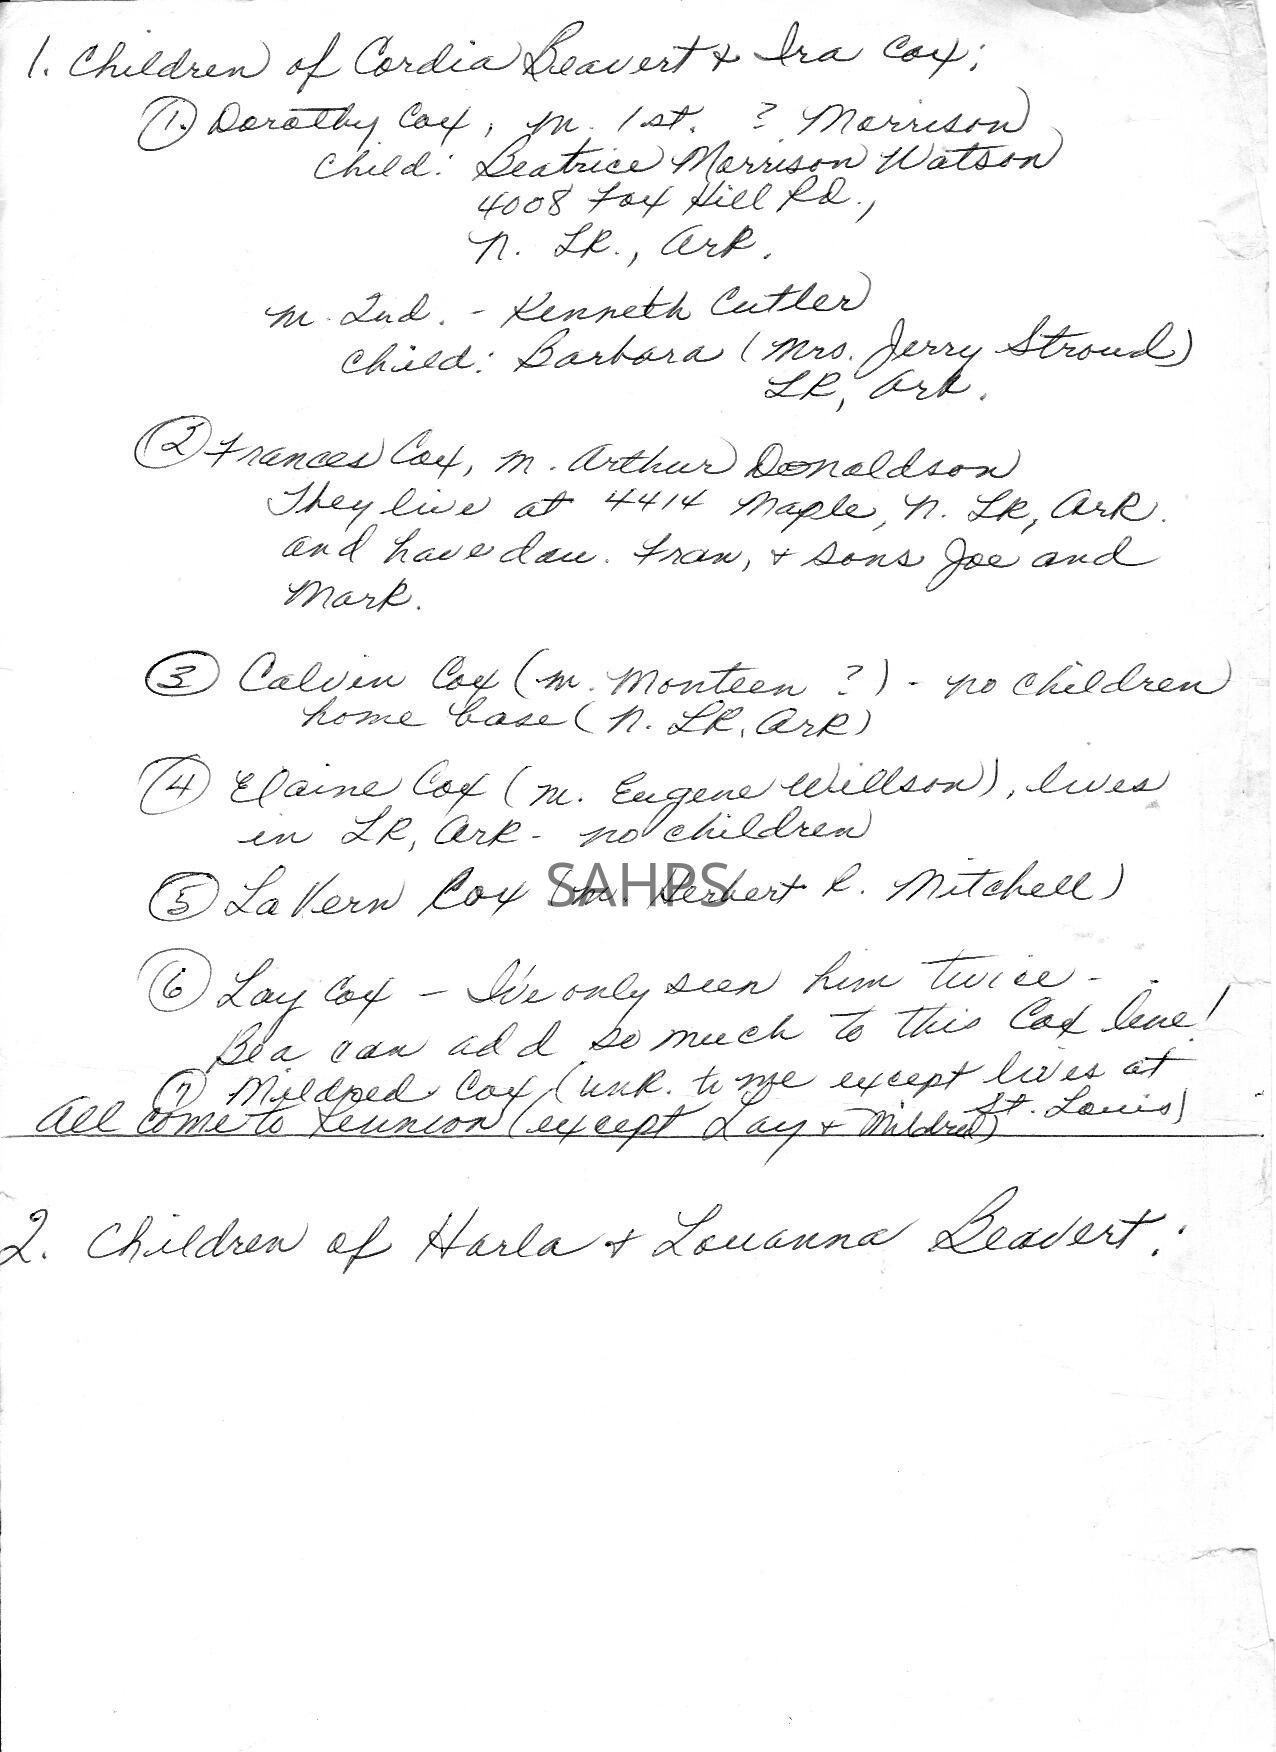 1. Children of Cordia Beavert & Ira Cox;
① Dorothy Cox, m. 1st. ? Morrison
child: Beatrice Morrison Watson
4008 Fox Hill Rd.,
N. LR., Ark.
m. 2nd. - Kenneth Cutler
child: Barbara (Mrs. Jerry Stroud)
LR, Ark.
② Frances Cox, m. Arthur Donaldson
They live at 4414 Maple, N. LR, Ark.
and have dau. Fran, & sons Joe and
Mark.
③ Calvin Cox (m. Monteen ?) - no children
home base (N. LR, Ark)
④ Elaine Cox (m. Eugene Willson), lives
in LR, Ark - no children
⑤ LaVern Cox (m. Herbert R. Mitchell)
SAHPS
⑥ Loy Cox - I've only seen him twice -
Bea can add so much to this Cox line!
⑦ Mildred Cox (unk. to me except lives at
St. Louis)
All come to Reunion (except Loy & Mildred)
2. Children of Harla & Louanna Beavert: